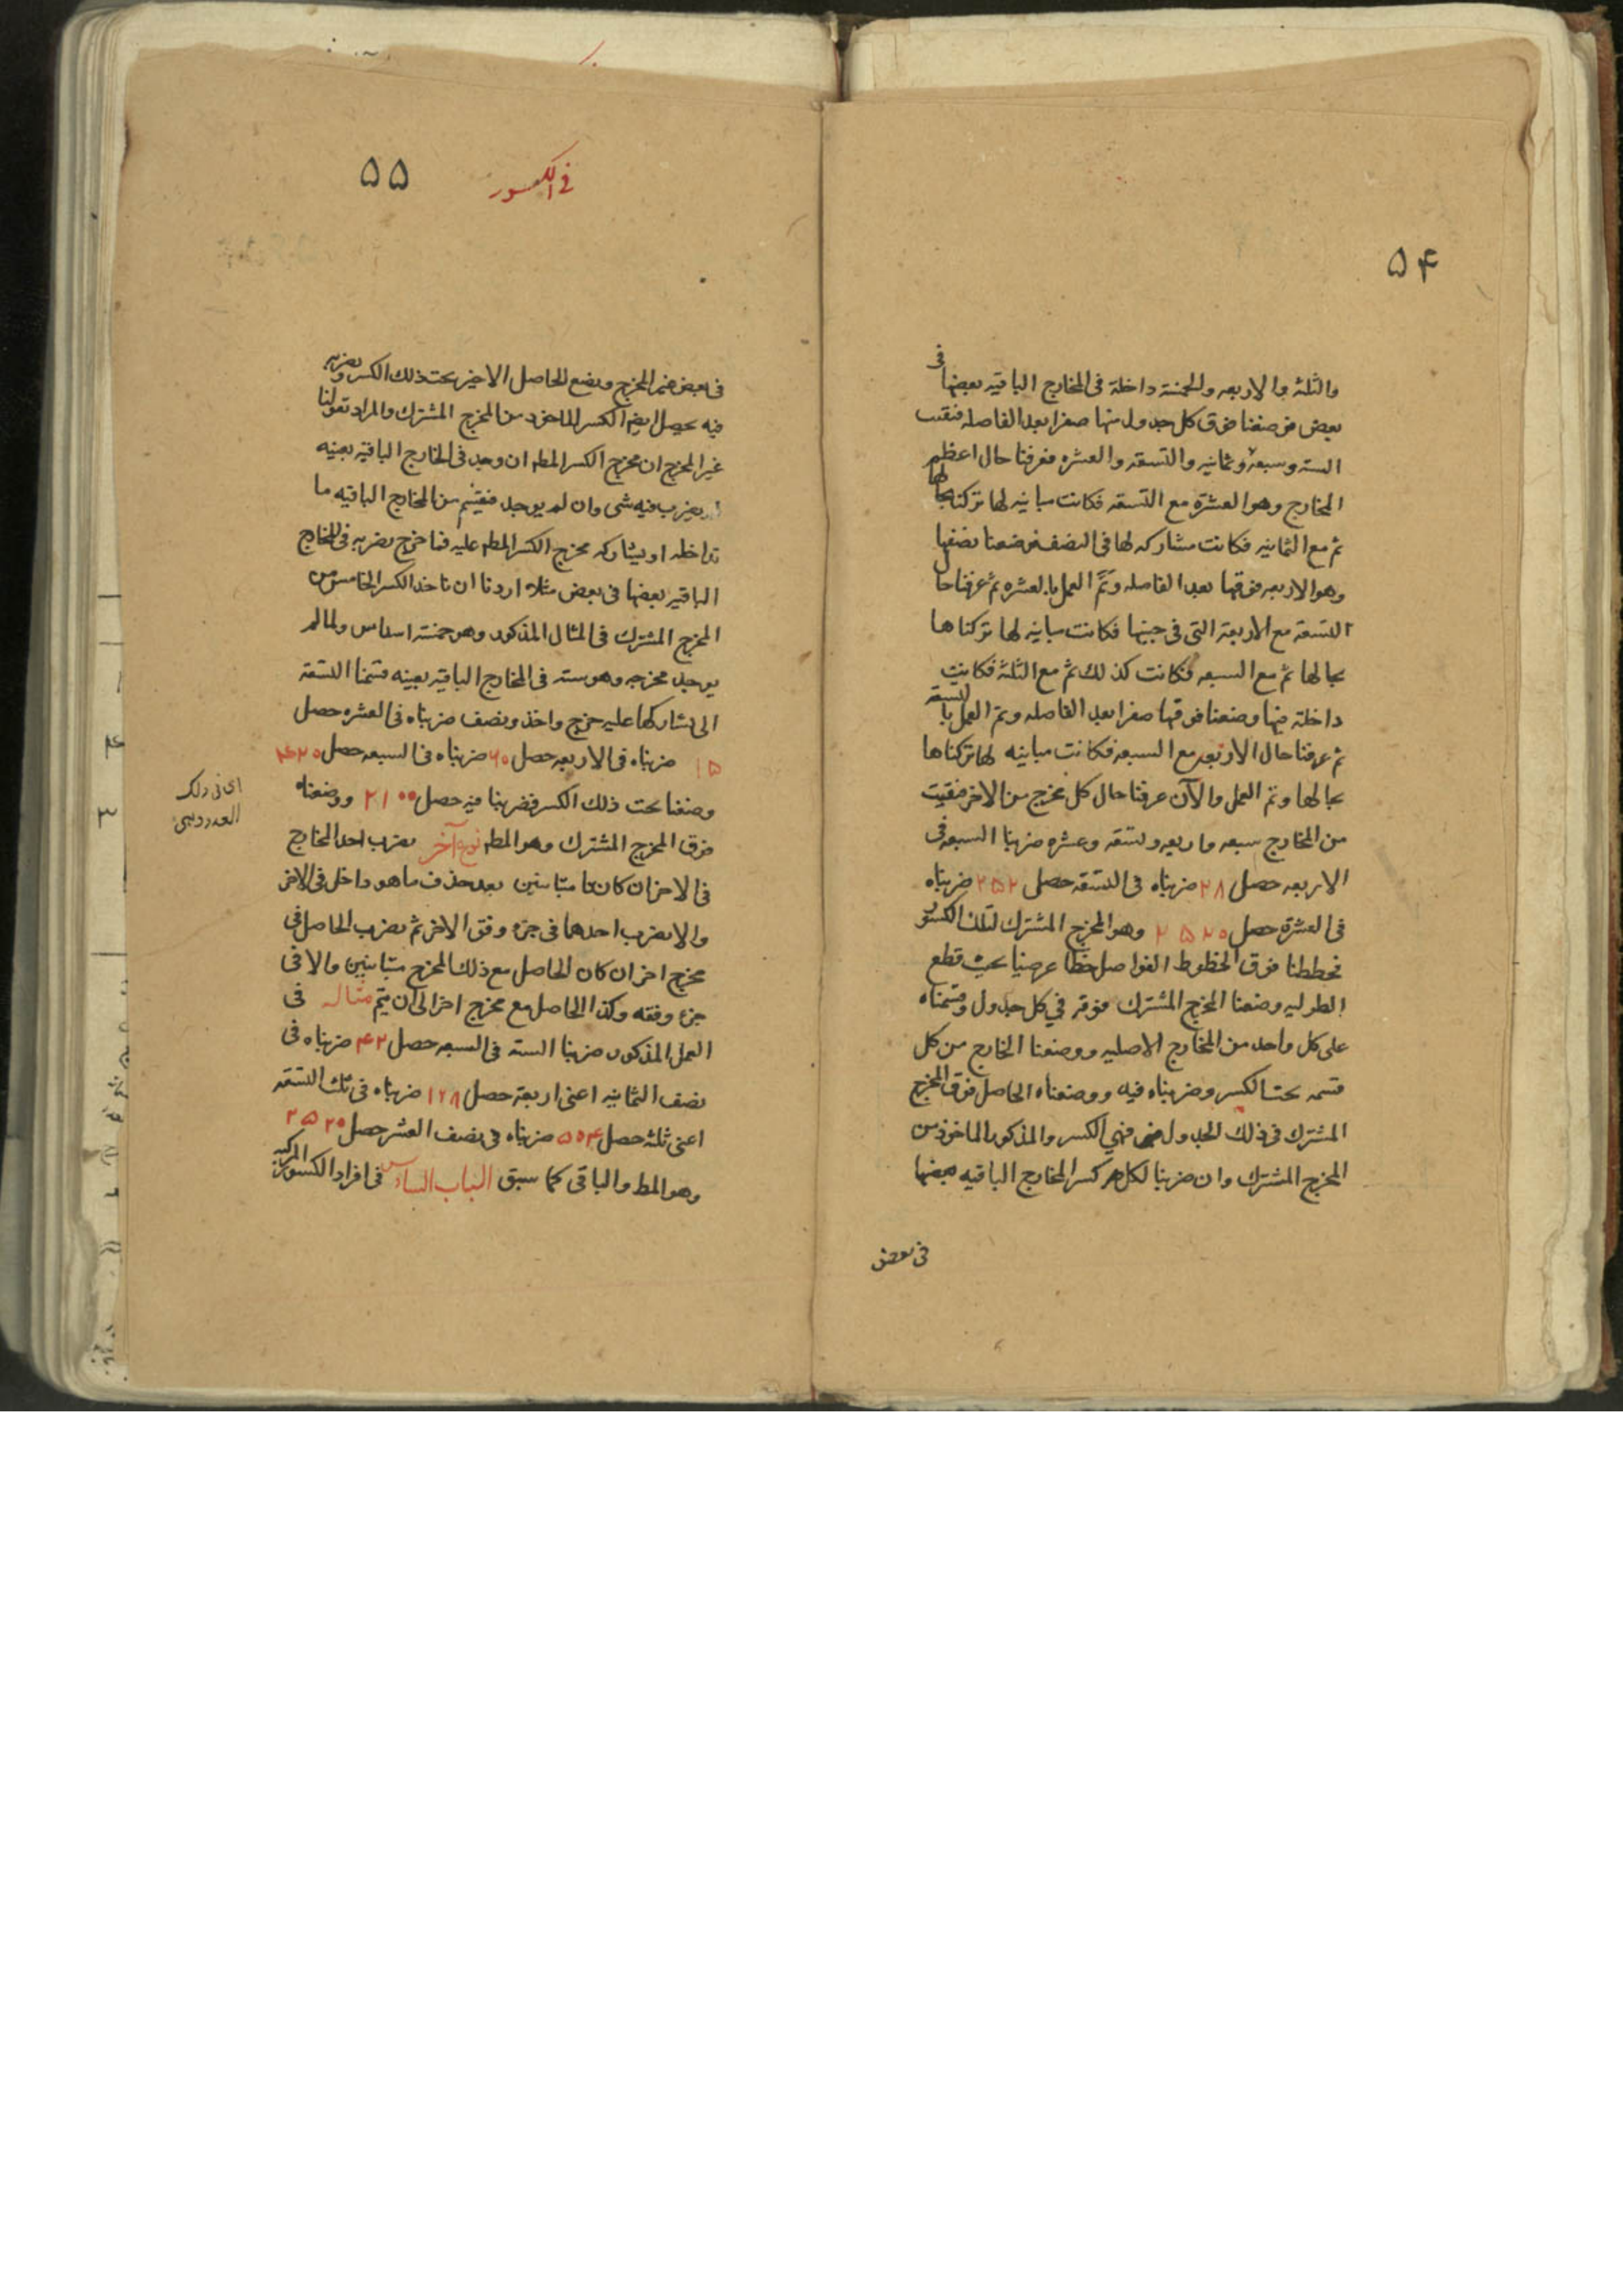 ۵۴
والثلثه والاربعه والخمسة داخلة فى المخارج الباقيه بعضها فى
بعض فوضعنا فوق كل جدول منها صفرا بعد الفاصله فبقيت
السته وسبعة وثمانيه والتسعة والعشره فعرفنا حال اعظم
المخارج وهو العشرة مع التسعة فكانت مباينه لها تركناها بحالها
ثم مع الثمانيه فكانت مشاركه لها فى النصف فوضعنا نصفها
وهو الاربعه فوقها بعد الفاصله وتم العمل بالعشره ثم عرفنا حال
التسعة مع الاربعة التى فى جنبها فكانت مباينه لها تركناها
بحالها ثم مع السبعه فكانت كذلك ثم مع الثلثة فكانت
داخلة فيها وضعنا فوقها صفرا بعد الفاصله وتم العمل بالتسعة
ثم عرفنا حال الاربعه مع السبعه فكانت مباينه لها تركناها
بحالها وتم العمل والآن عرفنا حال كل مخرج من الاخر فبقيت
من المخارج سبعه واربعه وتسعة وعشره ضربنا السبعه فى
الاربعه حصل ۲۸ ضربناه فى التسعة حصل ۲۵۲ ضربناه
فى العشرة حصل ۲۵۲۰ وهو المخرج المشترك لتلك الكسور
فخططنا فوق الخطوط الفواصل خطا عرضيا بحيث قطع
الطوليه وضعنا المخرج المشترك فوقه فى كل جدول وقسمناه
على كل واحد من المخارج الاصليه ووضعنا الخارج من كل
قسمه تحت الكسر وضربناه فيه ووضعناه الحاصل فوق المخرج
المشترك فى ذلك الجدول فهى الكسر والمذكور الماخوذ من
المخرج المشترك وان ضربنا لكل كسر المخارج الباقيه بعضها
فى بعض
فى الكسور
۵۵
فى بعض المخرج ونضع الحاصل الاخير تحت ذلك الكسر ونضربه
فيه يحصل ايضا الكسر الماخوذ من المخرج المشترك والمراد بقولنا
غير المخرج ان مخرج الكسر المط ان وجد فى المخارج الباقيه بعينه
يضرب فيه شى وان لم يوجد فنقسم من المخارج الباقيه ما
تداخله او يشاركه مخرج الكسر المط عليه فما خرج نضربه فى المخارج
الباقيه بعضها فى بعض مثلا اردنا ان ناخذ الكسر الخامس من
المخرج المشترك فى المثال المذكور وهو خمسة اسداس ولما لم
يوجد مخرجه وهو سته فى المخارج الباقيه بعينه قسمنا التسعة
الى تشاركها عليه خرج واحد ونصف ضربناه فى العشره حصل
۱۵ ضربناه فى الاربعه حصل ۶۰ ضربناه فى السبعه حصل ۴۲۰
وضعنا تحت ذلك الكسر فضربنا فيه حصل ۲۱۰۰ ووضعناه
فوق المخرج المشترك وهو المط نوع آخر نضرب احد المخارج
فى الاخر ان كانتا متباينين بعد حذف ما هو داخل فى الاخر
والا نضرب احدهما فى جزء وفق الاخر ثم نضرب الحاصل فى
مخرج اخر ان كان الحاصل مع ذلك المخرج متباينين والا فى
جزء وفقه وكذا الحاصل مع مخرج اخر الى ان يتم مثاله فى
العمل المذكور ضربنا السته فى السبعه حصل ۴۲ ضربناه فى
نصف الثمانيه اعنى اربعة حصل ۱۲۸ ضربناه فى ثلث التسعه
اعنى ثلثه حصل ۵۰۴ ضربناه فى نصف العشر حصل ۲۵۲۰
وهو المط والباقى كما سبق الباب السادس فى افراد الكسور المركبه
اى فى ذلك